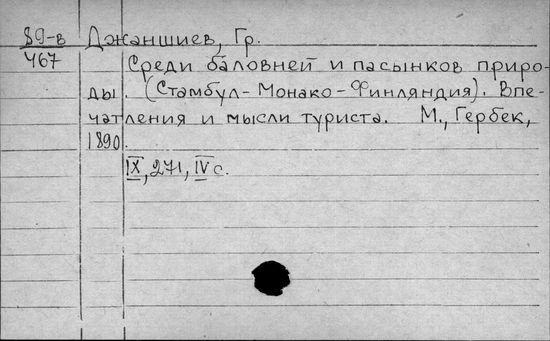 89-в Джаншиев, Гр.
467
Среди баловней и пасынков приро-
ды. (Стамбул-Монако-Финляндия). Впе-
чатления и мысли туриста. М., Гербек,
1890.
IX, 271, IV с.